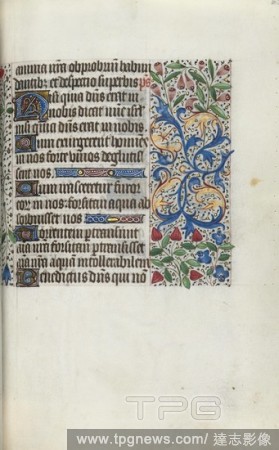 anima nr̃a obprobrium habun
dantib; et despectio superbis ps
Nisi quia dñs erat in
nobis dicat nunc isrl
nisi quia dñs erat in nobis
Cum exurgerent homines
in nos forte vivos degluti
sent nos
Cum irasceretur furor
eor in nos forsitan aqua ab
sorbuisset nos
Torrentem pertransivit
nr̃a forsitan pertransisset
nr̃a aquam intollerabilem
Benedictus dñs qui non
TPG
www.tpgnews.com/ 達志影像